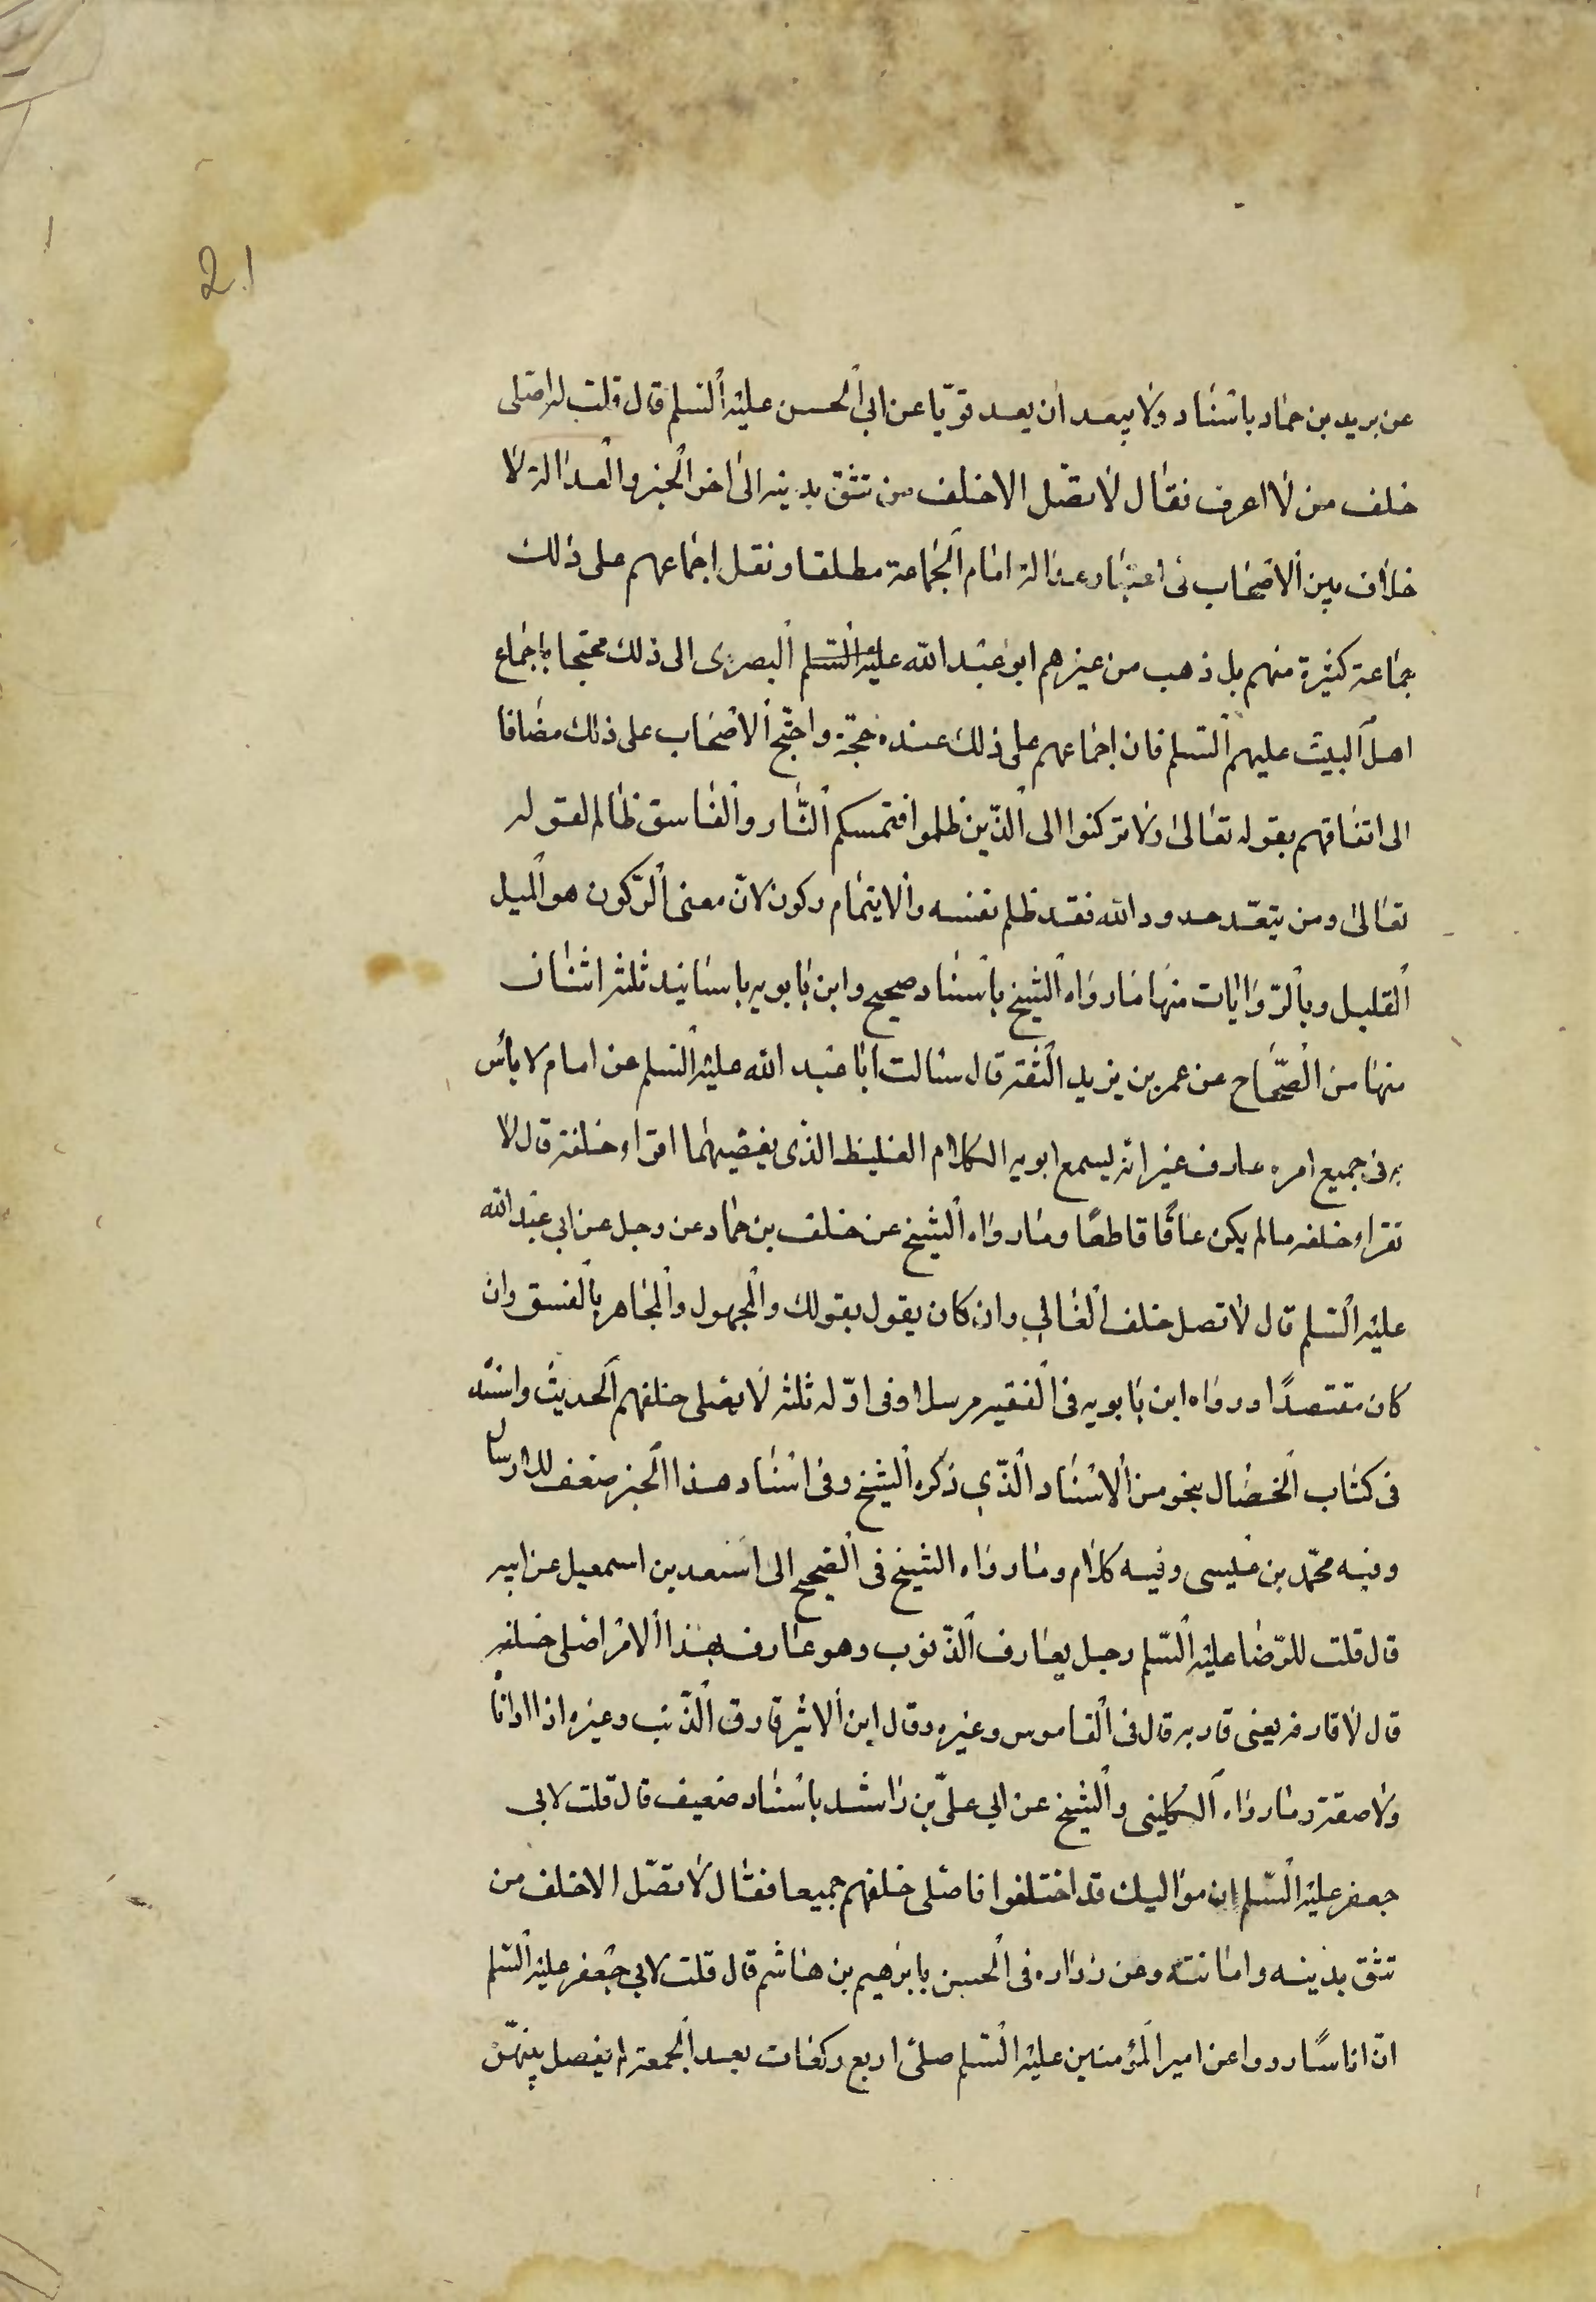 2.1
عن بريد بن حماد باسناد ولا يبعد ان يعد قويّا عن ابي الحسن عليه السلم قال قلت له اصلى
خلف من لا اعرف فقال لا تصّل الا خلف من تثق بدينه الى اخر الخبر والعدالة لا
خلاف بين الاصحاب فى اعتبار عدالة امام الجماعة مطلقا ونقل اجماعهم على ذلك
جماعة كثيرة منهم بل ذهب من غيرهم ابو عبد الله عليه السلم البصرى الى ذلك محتجا باجماع
اهل البيت عليهم السلم فان اجماعهم على ذلك عنده حجّة واحتّج الاصحاب على ذلك مضافا
الى اتفاقهم بقوله تعالى ولا تركنوا الى الذّين ظلموا فتمسكم النّار والفاسق ظالم لقوله
تعالى ومن يتعّد حدود الله فقد ظلم نفسه والايتمام ركون لانّ معنى الرّكون هو الميل
القليل وبالرّوايات منها ما رواه الشيخ باسناد صحيح وابن بابويه باسانيد ثلثه اثنان
منها من الصّحاح عن عمر بن يزيد الثقه قال سالت ابا عبد الله عليه السلم عن امام لا باس
به فى جميع امره عارف غير انّه يسمع ابويه الكلام الغليظ الذى يغضيهما اقراء خلفه قال لا
تقراء خلفه ما لم يكن عاقًا قاطعًا وما رواه الشيخ عن خلف بن حماد عن رجل عن ابي عبد الله
عليه السلم قال لا تصل خلف الغالي وان كان يقول بقولك والمجهول والمجاهر بالفسق وان
كان مقتصدًا ورواه ابن بابويه فى الفقيه مرسلا وفى اوّله ثلثه لا يصلى خلفهم الحديث واسنده
فى كتاب الخصال بنحو من الاسناد الذّي ذكره الشيخ وفى اسناد هذا الخبر ضعف للارسال
وفيه محمّد بن عيسى وفيه كلام وما رواه الشيخ فى الصحيح الى اسعد بن اسمعيل عن ابيه
قال قلت للرّضا عليه السّلم رجل يقارف الذّنوب وهو عارف بهذا الامر اصلى خلفه
قال لا قارفه يعنى قاربه قال فى القاموس وغيره وقال ابن الاثير قارف الذّنب وغيره اذا داناً
ولاصقه وما رواه الكلينى والشيخ عن ابي علىّ بن راشد باسناد ضعيف قال قلت لابى
جعفر عليه السّلم ان مواليك قد اختلفوا فاصلى خلفهم جميعا فقال لا تصّل الا خلف من
تثق بدينه وامانته وعن زراره فى الحسن بابرهيم بن هاشم قال قلت لابي جعفر عليه السّلم
انّ اناسًا رووا عن امير المؤمنين عليه السّلم صلىّ اربع ركعات بعد الجمعة لم يفصل بينهّن